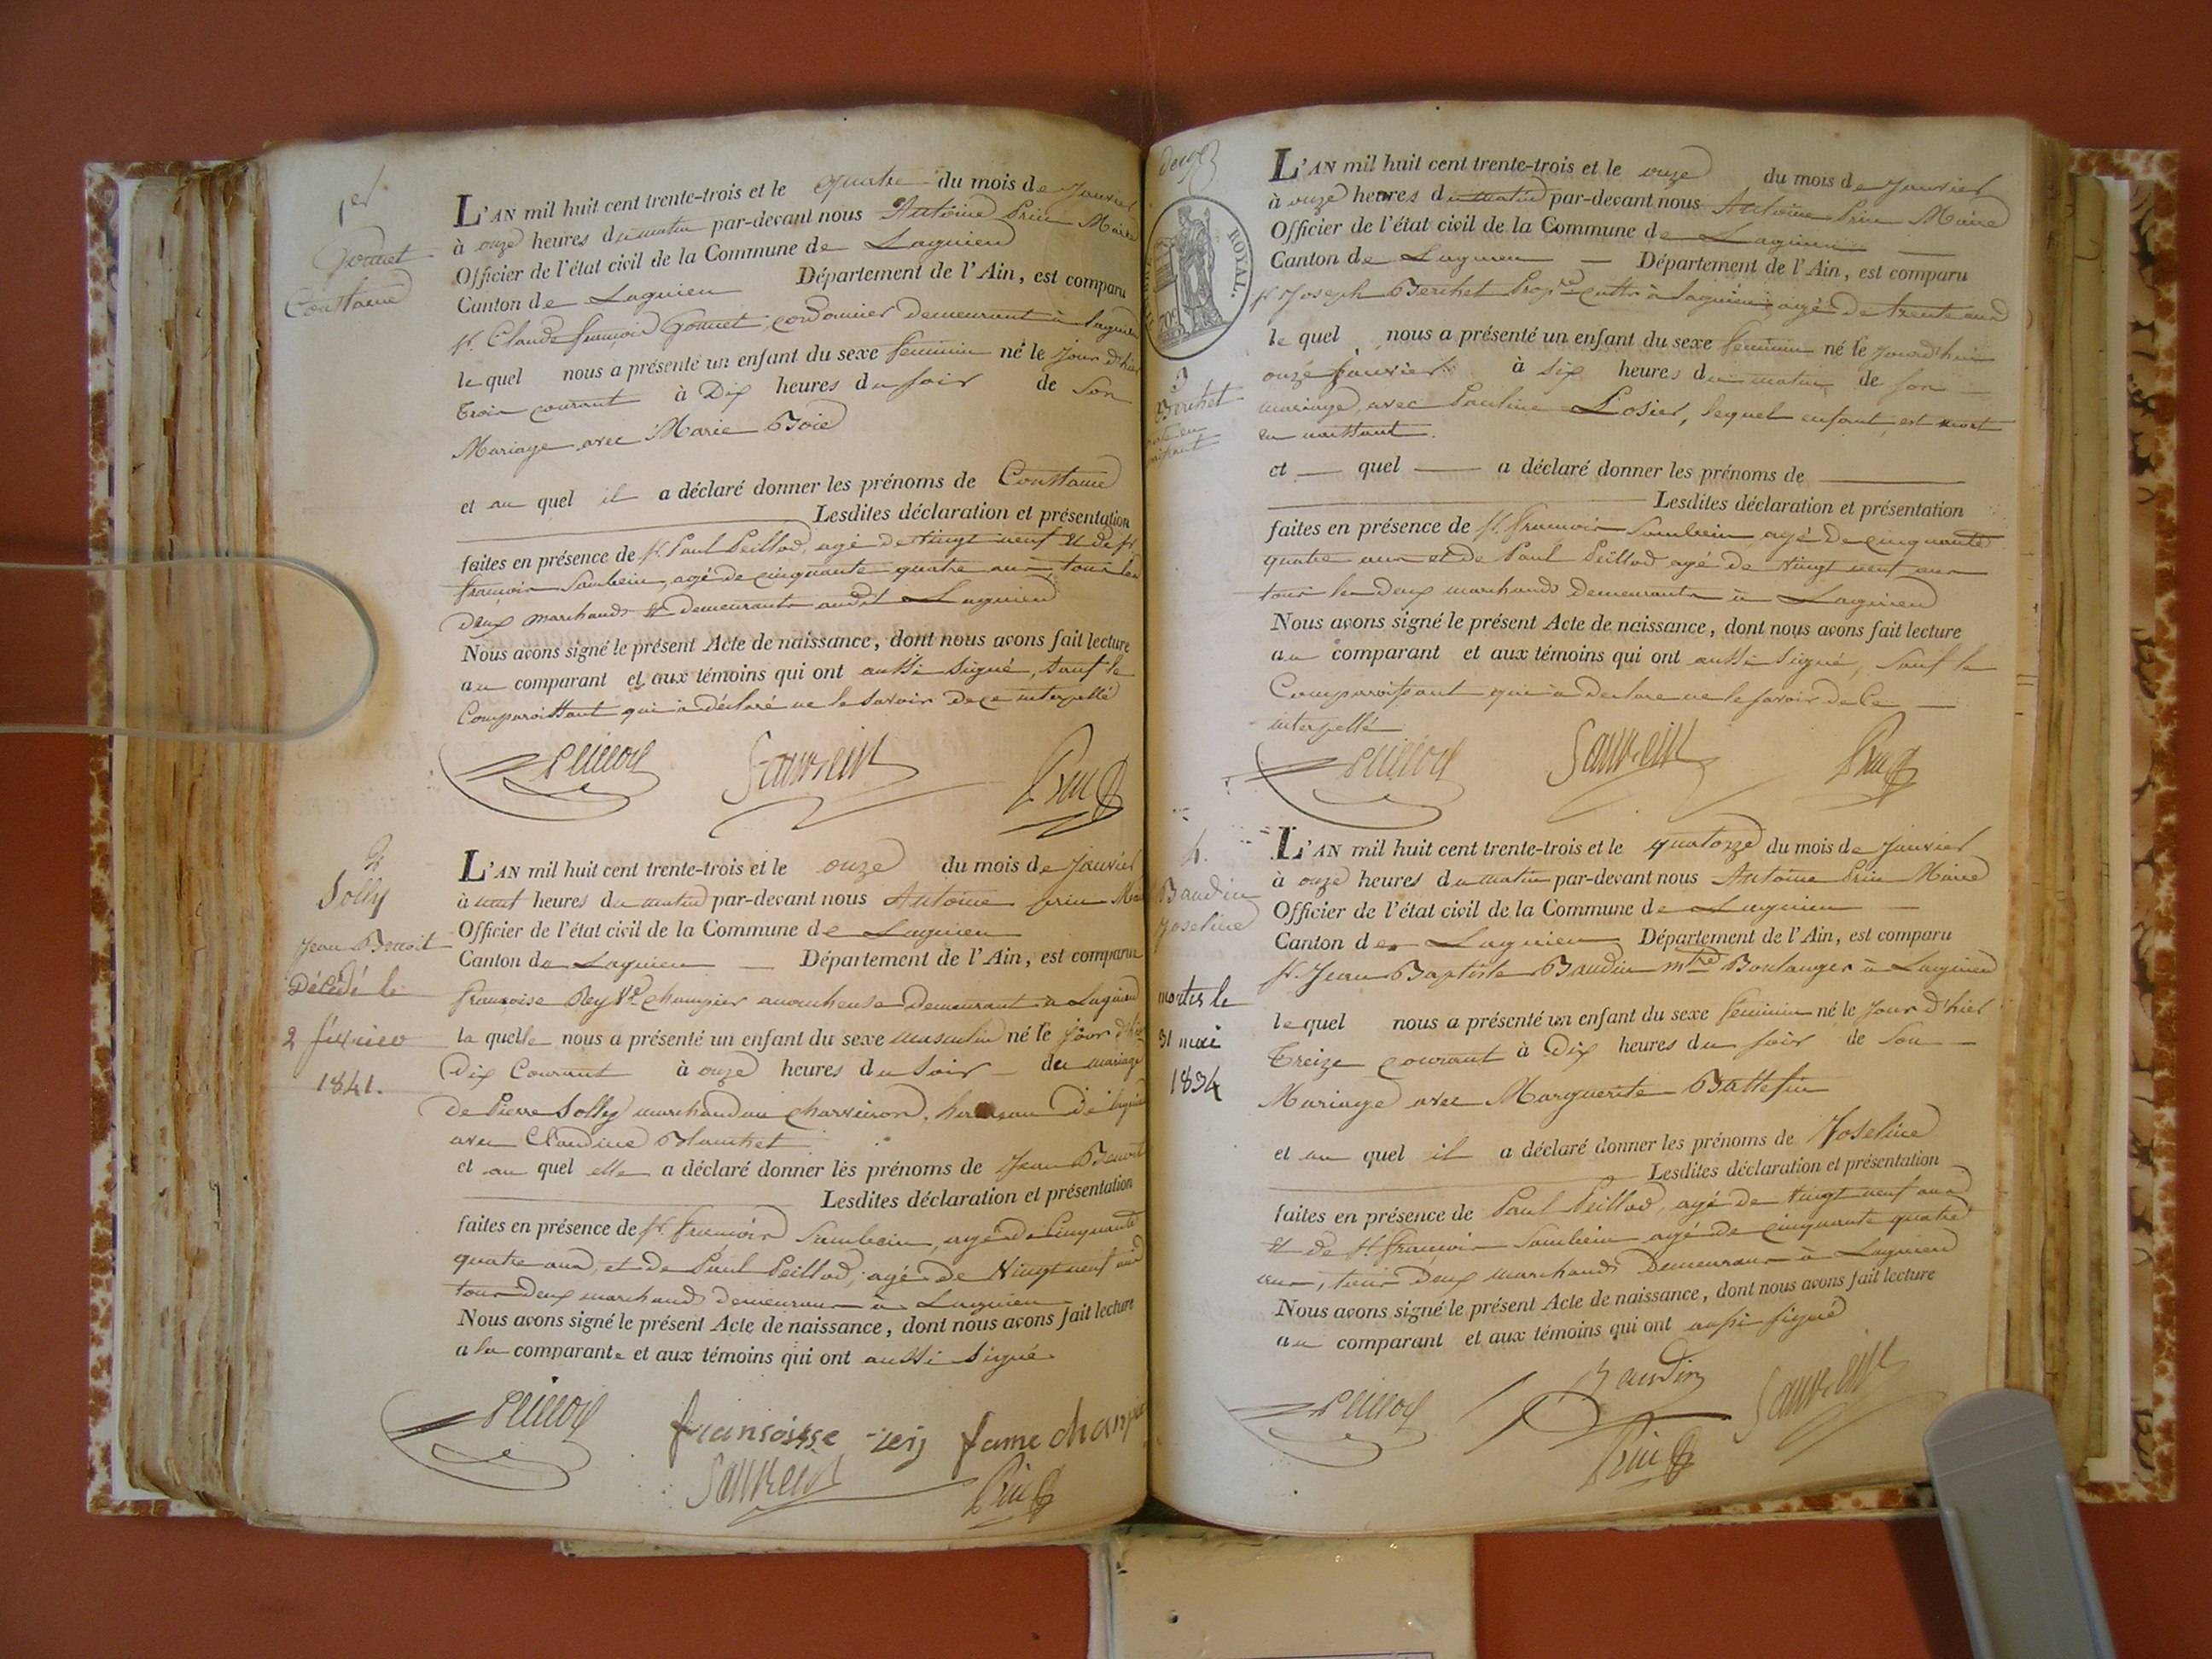 1er
Gonnet
Constance
L'AN mil huit cent trente-trois et le quatre du mois de Janvier
à onze heures du matin par-devant nous Antoine Prin Maire
Officier de l'état civil de la Commune de Lagnieu
Canton de Lagnieu Département de l'Ain, est comparu
sr. Claude françois Gonnet, cordonnier demeurant à Lagnieu
le quel nous a présenté un enfant du sexe féminin né le jour d'hier
trois courant à Dix heures du soir de Son
Mariage avec Marie Boie
et au quel il a déclaré donner les prénoms de Constance
Lesdites déclaration et présentation
faites en présence de sr. Paul Peillod, agé de vingt neuf et de sr
françois Sambein, agé de cinquante quatre ans, tous les
deux marchands et demeurants audit Lagnieu
Nous avons signé le présent Acte de naissance, dont nous avons fait lecture
au comparant et aux témoins qui ont aussi signé, sauf le
Comparoissant qui a déclaré ne le savoir de ce interpellé
Peillod Prin
2
Solly
Jean Benoit
Décédé le
2
1841.
L'AN mil huit cent trente-trois et le onze du mois de Janvier
à neuf heures du matin par-devant nous Antoine prin Maire
Officier de l'état civil de la Commune de Lagnieu
Canton de Lagnieu Département de l'Ain, est comparue
françoise Rey Ve. champier accoucheuse Demeurant à Lagnieu
la quelle nous a présenté un enfant du sexe masculin né le jour d'hier
Dix Courant à onze heures du Soir du mariage
de Pierre Solly marchand au charveiron, hameau de Lagnieu
avec Claudine Blanchet
et au quel elle a déclaré donner les prénoms de Jean Benoit
Lesdites déclaration et présentation
faites en présence de sr. françois Sambein, agé de Cinquante
quatre ans, et de Paul Peillod, agé de Vingt neuf ans
tous deux marchands demeurans à Lagnieu
Nous avons signé le présent Acte de naissance, dont nous avons fait lecture
a la comparante et aux témoins qui ont aussi signé
Peillod fransoisse reij fame
Prin
deux
ROYAL.
3
Berchet
L'AN mil huit cent trente-trois et le onze du mois de Janvier
à onze heures du matin par-devant nous Antoine Prin Maire
Officier de l'état civil de la Commune de Lagnieu
Canton de Lagnieu Département de l'Ain, est comparu
sr Joseph Berchet Propre. cultr. à Lagnieu agé de trente ans
le quel nous a présenté un enfant du sexe féminin né le jourd'hui
onze Janvier à six heures du matin de son
mariage avec Pauline Losier, lequel enfant est mort
en naissant.
et quel a déclaré donner les prénoms de
Lesdites déclaration et présentation
faites en présence de sr. françois Sambein agé de cinquante
quatre ans et de Paul Peillod agé de vingt neuf ans
tous les deux marchands demeurants à Lagnieu
Nous avons signé le présent Acte de naissance, dont nous avons fait lecture
au comparant et aux témoins qui ont aussi signé, sauf le
Comparoissant qui à déclaré ne le savoir de Ce
interpellé
Peillod Prin
4.
Baudin
Joseline
31 mai
1834
L'AN mil huit cent trente-trois et le quatorze du mois de Janvier
à onze heures du matin par-devant nous Antoine Prin Maire
Officier de l'état civil de la Commune de Lagnieu
Canton de Lagnieu Département de l'Ain, est comparu
sr. Jean Baptiste Baudin mtre Boulanger à Lagnieu
le quel nous a présenté un enfant du sexe féminin né le Jour d'hier
Treize courant à Dix heures du soir de Son
Mariage avec Marguerite Battefin
et au quel il a déclaré donner les prénoms de Joseline
Lesdites déclaration et présentation
faites en présence de Paul Peillod, agé de vingt neuf ans
et de sr. françois Sambein agé de cinquante quatre
ans, tous deux marchands Demeurans à Lagnieu
Nous avons signé le présent Acte de naissance, dont nous avons fait lecture
au comparant et aux témoins qui ont aussi signé
Peillod Baudin
Prin